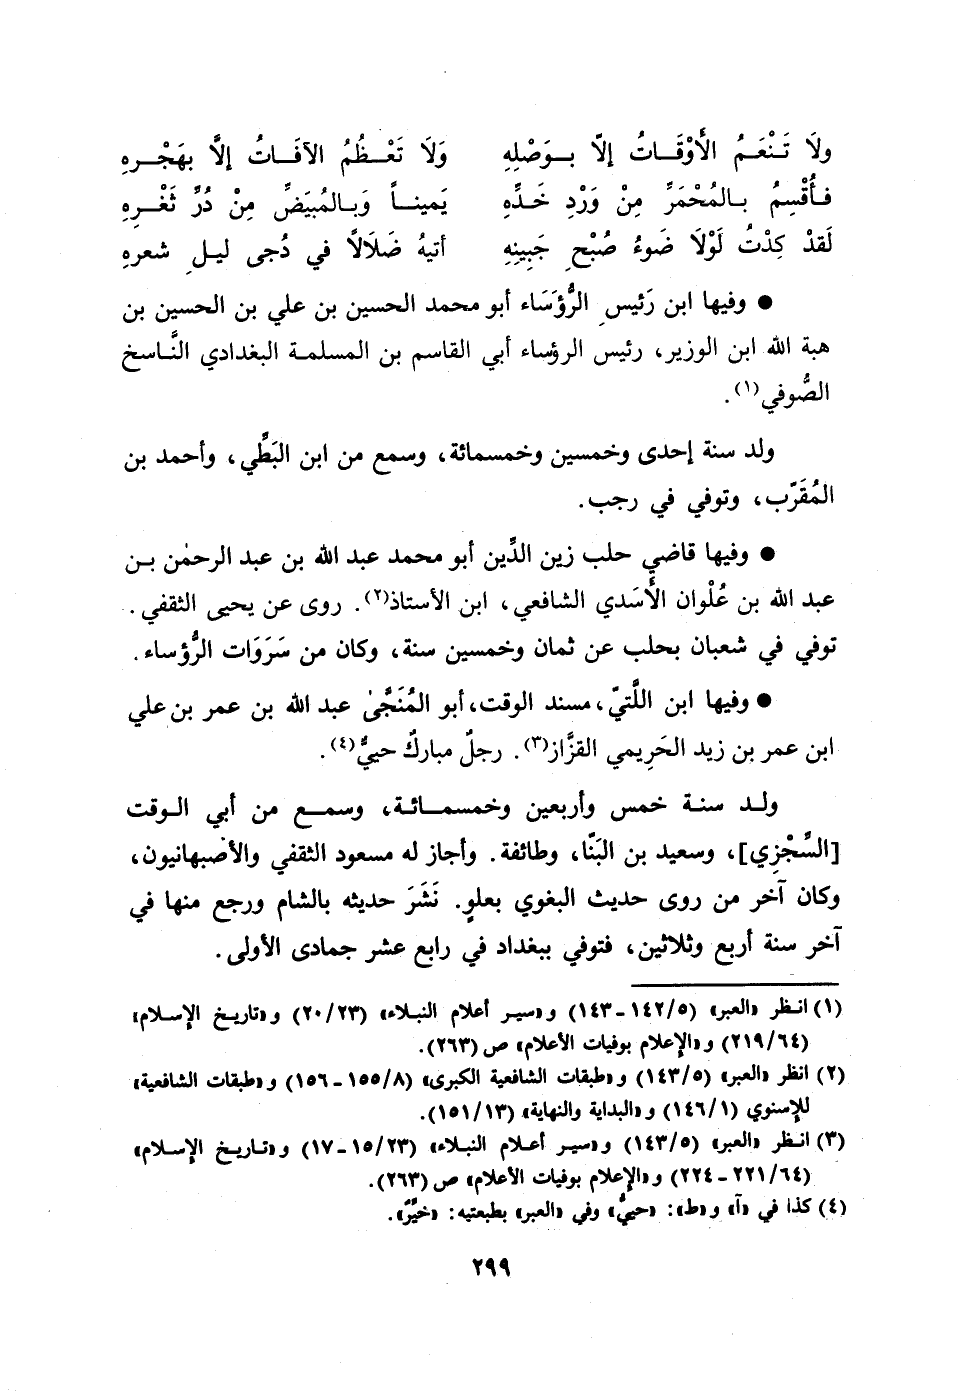 ولَا تَنْعَمُ الأَوْقَاتُ إلاّ بوَصْلِهِ وَلَا تَعْظُمُ الآفَاتُ إلاَّ بهَجْرِه
فأُقْسِمُ بالمُحْمَرِّ مِنْ وَرْدِ خَدِّهِ يَميناً وَبالمُبيَضِّ مِنْ دُرِّ ثَغْرِه
لَقدْ كِدْتُ لَوْلَا ضَوءُ صُبْحِ جَبِينِهِ أتيهُ ضَلَالًا في دُجى ليلِ شعرهِ
● وفيها ابن رَئيسِ الرُّؤَسَاء أبو محمد الحسين بن علي بن الحسين بن
هبة الله ابن الوزير، رئيس الرؤساء أبي القاسم بن المسلمة البغدادي النَّاسخ
الصُّوفي(١).
ولد سنة إحدى وخمسين وخمسمائة، وسمع من ابن البَطِّي، وأحمد بن
المُقَرّب، وتوفي في رجب.
● وفيها قاضي حلب زين الدِّين أبو محمد عبد الله بن عبد الرحمٰن بن
عبد الله بن عُلْوان الأَسَدي الشافعي، ابن الأستاذ(٢). روى عن يحيى الثقفي.
توفي في شعبان بحلب عن ثمان وخمسين سنة، وكان من سَرَوَات الرُّؤساء.
● وفيها ابن اللَّتيّ، مسند الوقت، أبو المُنَجَّىٰ عبد الله بن عمر بن علي
ابن عمر بن زيد الحَرِيمي القزَّاز(٣). رجلٌ مباركٌ حييٌّ(٤).
ولد سنة خمس وأربعين وخمسمائة، وسمع من أبي الوقت
[السِّجْزِي]، وسعيد بن البَنَّا، وطائفة. وأجاز له مسعود الثقفي والأصْبهانيون،
وكان آخر من روى حديث البغوي بعلوٍ. نَشَرَ حديثه بالشام ورجع منها في
آخر سنة أربع وثلاثين، فتوفي ببغداد في رابع عشر جمادى الأولى.
(١) انظر «العبر» (٥/ ١٤٢ - ١٤٣) و«سير أعلام النبلاء» (٢٣/ ٢٠) و«تاريخ الإسلام»
(٦٤/ ٢١٩) و«الإعلام بوفيات الأعلام» ص (٢٦٣).
(٢) انظر «العبر» (٥/ ١٤٣) و«طبقات الشافعية الكبرى» (٨/ ١٥٥ - ١٥٦) و«طبقات الشافعية»
للإسنوي (١/ ١٤٦) و«البداية والنهاية» (١٣/ ١٥١).
(٣) انظر «العبر» (٥/ ١٤٣) و«سير أعلام النبلاء» (٢٣/ ١٥ - ١٧) و«تاريخ الإسلام»
(٦٤/ ٢٢١ - ٢٢٤) و«الإعلام بوفيات الأعلام» ص (٢٦٣).
(٤) كذا في «آ» و«ط»: «حييٌّ» وفي «العبر» بطبعتيه: «خيِّرٌ».
٢٩٩